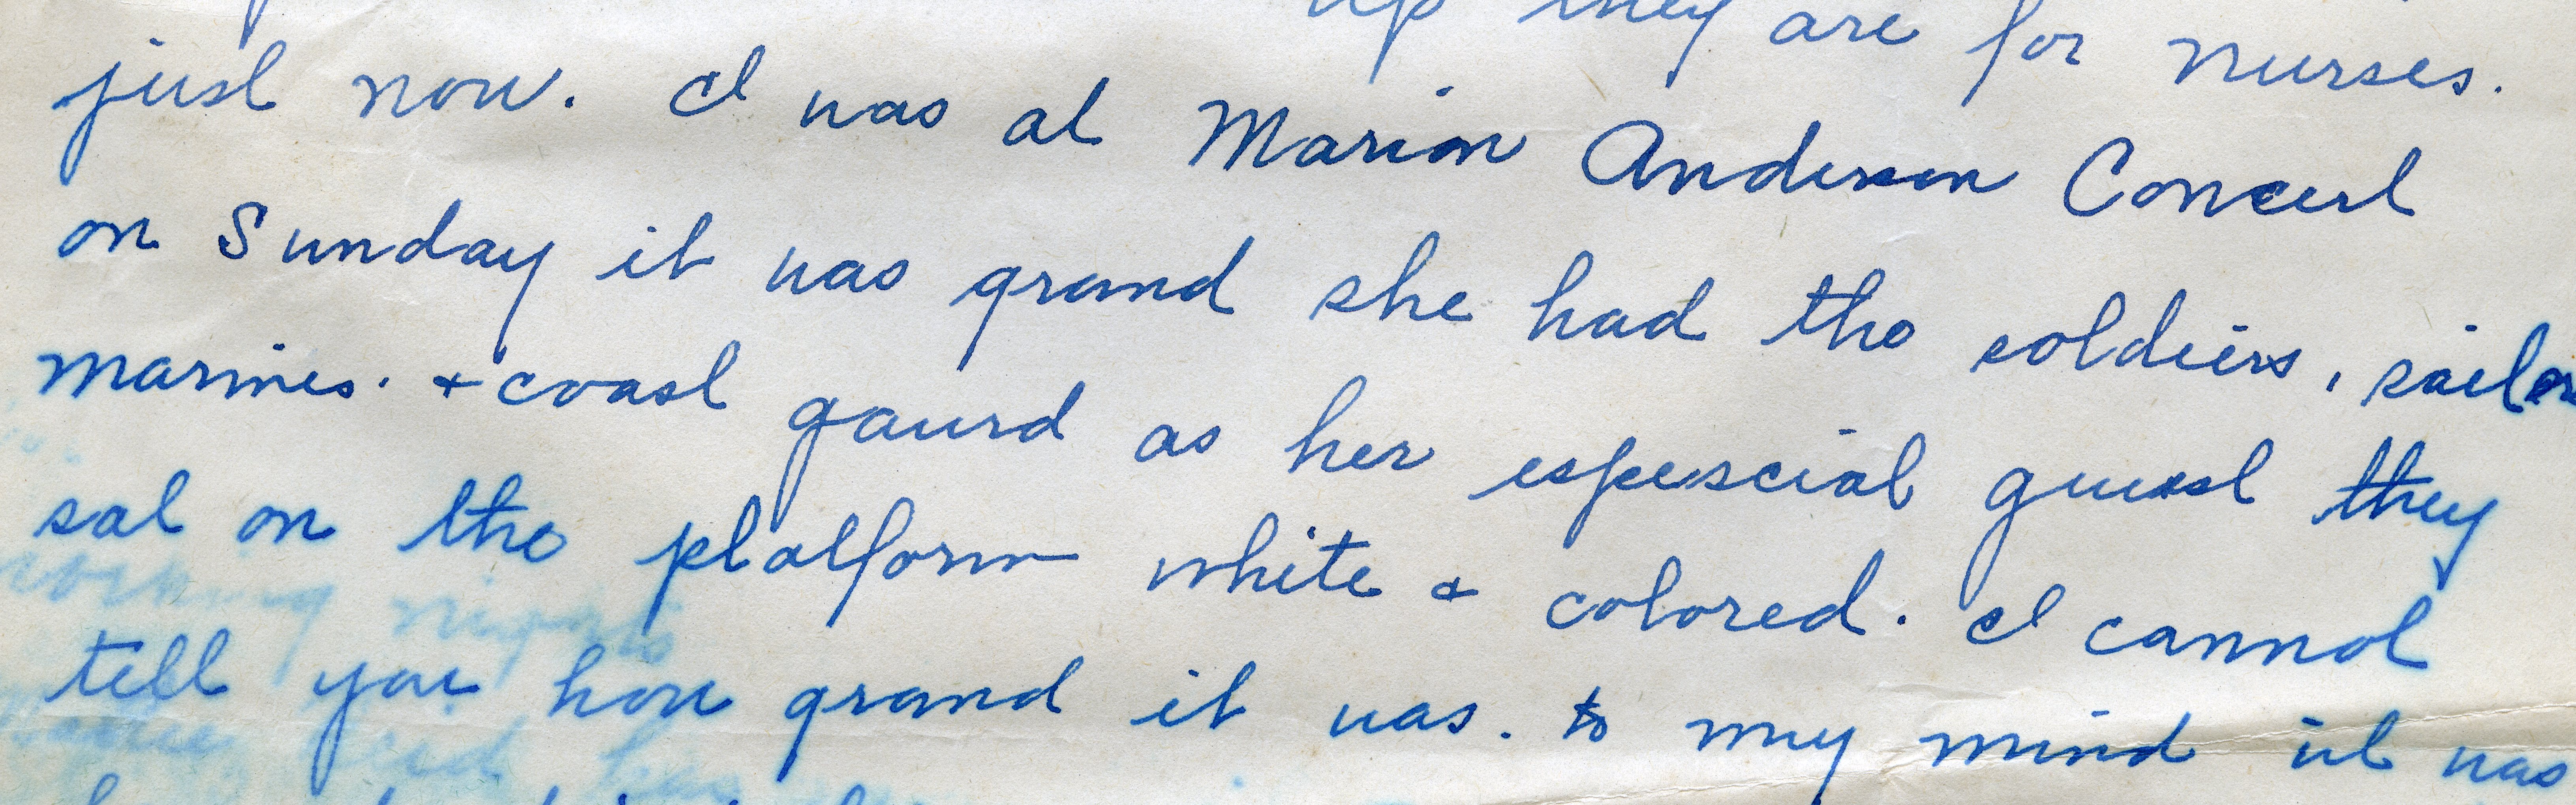 up they are for nurses.
just now. I was at Marion Anderson Concert
on Sunday it was grand she had the soldiers, sailors
marines. + coast gaurd as her espescial guest they
sat on the platform white & colored. I cannot
tell you how grand it was. to my mind it was